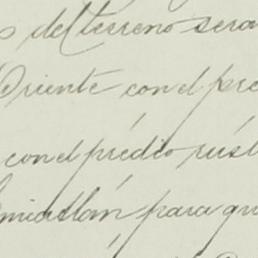 del terreno sera
Oriente con el pre
con el prédio rúst
miatlán para qu